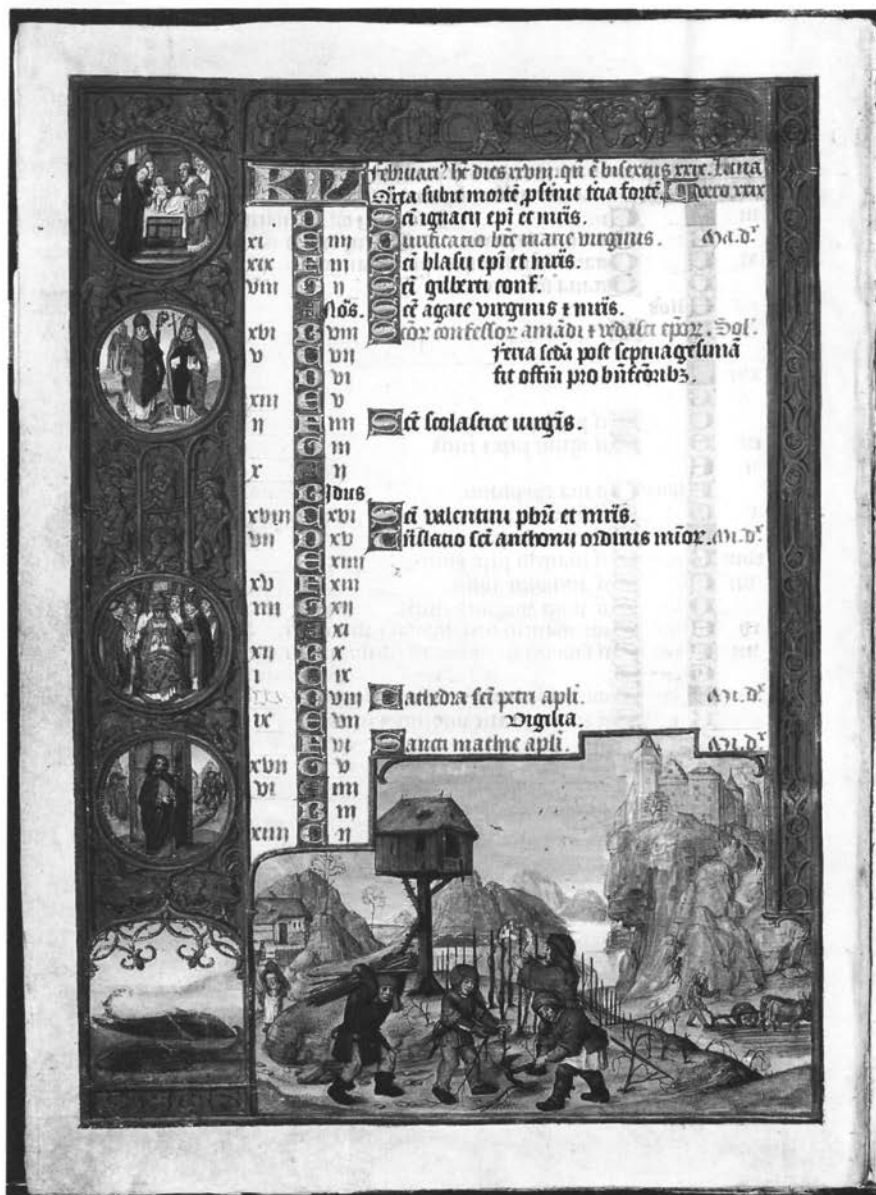 KL Februari⁹ ht̄ dies xxviii. qn̄ ē bisextus xxix. Luna
Q̄rta subit mortē, ꝓsternit t̄cia fortē. xxix
D Sc̄i ignacij ep̄i et mr̄is.
xi E iiii Purificatio bt̄e marie virginis. Ma.dx
xix F iii Sc̄i blasii ep̄i et mr̄is.
viii G ii Sc̄i gilberti conf.
A Nōs. Sc̄e agate virginis ⁊ mr̄is.
xvi B viii Sc̄or confessor amādi ⁊ vedasti epor. Sol.
v C vii feria sc̄da post septuagesimā
D vi fit offm̄ pro bn̄fc̄oribꝫ.
xiii E v
ii F iiii Sc̄e scolastice virgis.
G iii
x A ii
B Idus
xviii C xvi Sc̄i valentini pbr̄i et mr̄is.
vii D xv Tn̄slatio sc̄i anthonij ordinis mīor. Mi.dx
E xiiii
xv F xiii
iiii G xii
A xi
xii B x
i C ix
D viii Cathedra sc̄i petri apl̄i. Mi.dx
ix E vii Vigilia.
F vi Sancti mathie apl̄i. Mi.dx
xvii G v
vi A iiii
B iii
xiiii C ii